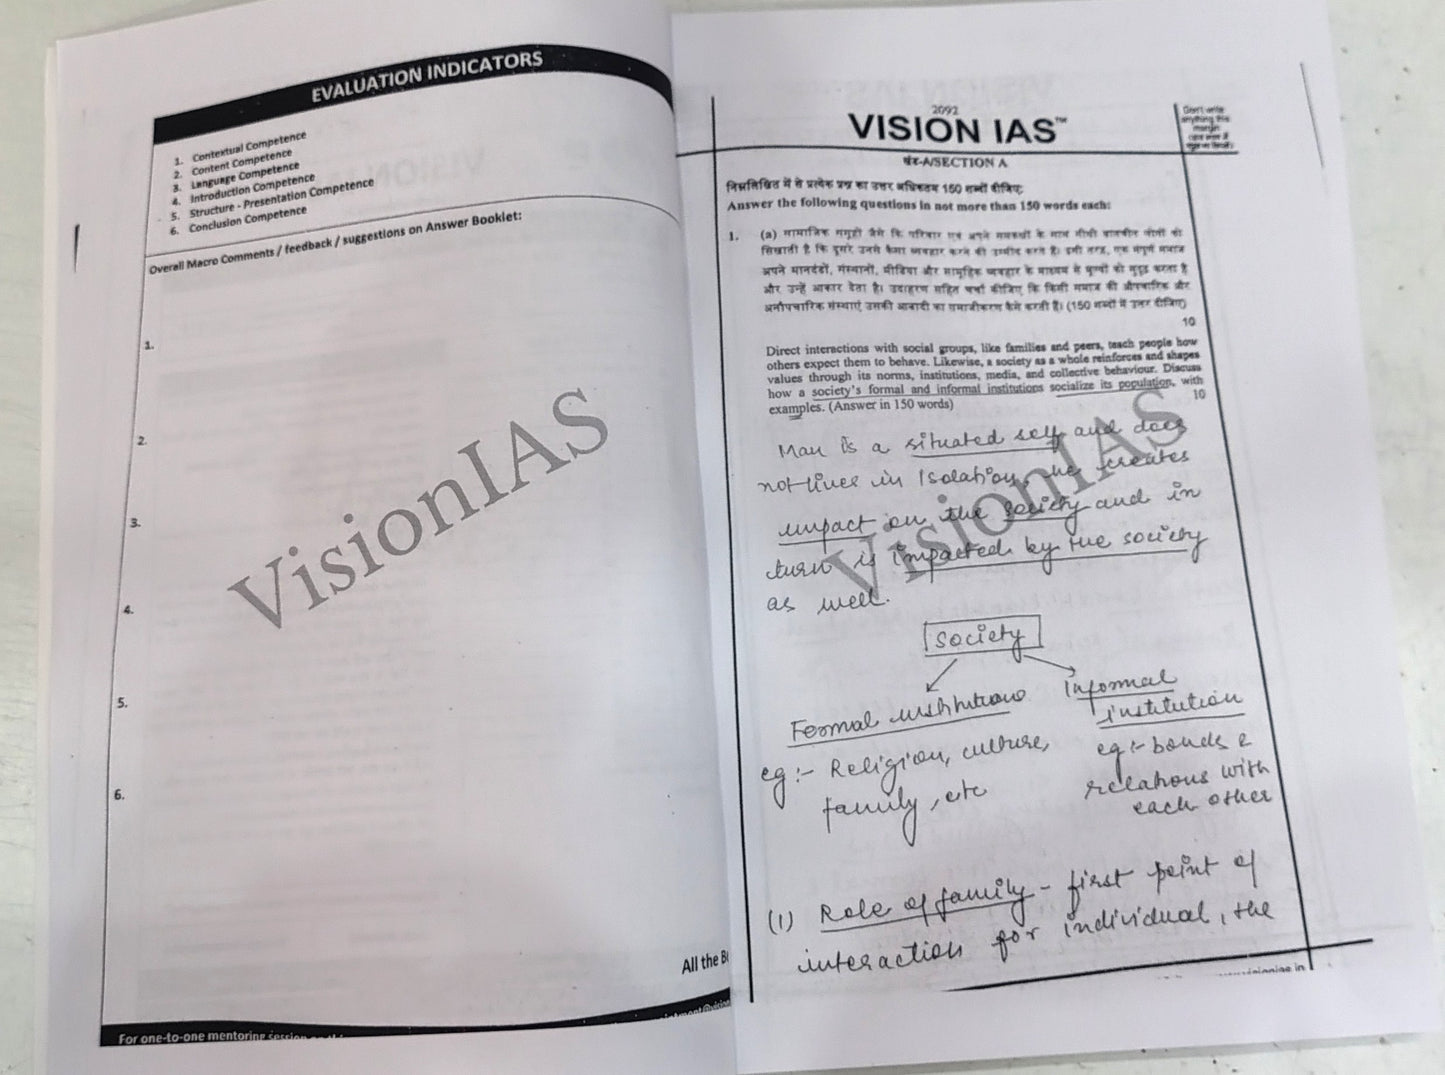 EVALUATION INDICATORS
1. Contextual Competence
2. Content Competence
3. Language Competence
4. Introduction Competence
5. Structure - Presentation Competence
6. Conclusion Competence
Overall Macro Comments / feedback / suggestions on Answer Booklet:
1.
2.
3.
4.
5.
6.
VisionIAS
All the B
For one-to-one mentoring session
2092
VISION IAS™
Don't write
anything this
margin
खंड-A/SECTION A
निम्नलिखित में से प्रत्येक प्रश्न का उत्तर अधिकतम 150 शब्दों में दीजिए:
Answer the following questions in not more than 150 words each:
1. (a) सामाजिक समूहों जैसे कि परिवार एवं अपने समकक्षों के साथ सीधी बातचीत लोगों को
सिखाती है कि दूसरे उनसे कैसा व्यवहार करने की उम्मीद करते हैं। इसी तरह, एक संपूर्ण समाज
अपने मानदंडों, संस्थानों, मीडिया और सामूहिक व्यवहार के माध्यम से मूल्यों को सुदृढ़ करता है
और उन्हें आकार देता है। उदाहरण सहित चर्चा कीजिए कि किसी समाज की औपचारिक और
अनौपचारिक संस्थाएं उसकी आबादी का समाजीकरण कैसे करती हैं। (150 शब्दों में उत्तर दीजिए)
10
Direct interactions with social groups, like families and peers, teach people how
others expect them to behave. Likewise, a society as a whole reinforces and shapes
values through its norms, institutions, media, and collective behaviour. Discuss
how a society's formal and informal institutions socialize its population, with
examples. (Answer in 150 words) 10
Man is a situated self and does
not lives in Isolation, he creates
impact on the society and in
turn is impacted by the society
as well.
VisionIAS
Society
Formal institutions
Informal
institution
eg:- Religion, culture,
family, etc
eg:- bonds &
relations with
each other
(1) Role of family - first point of
interaction for individual, the